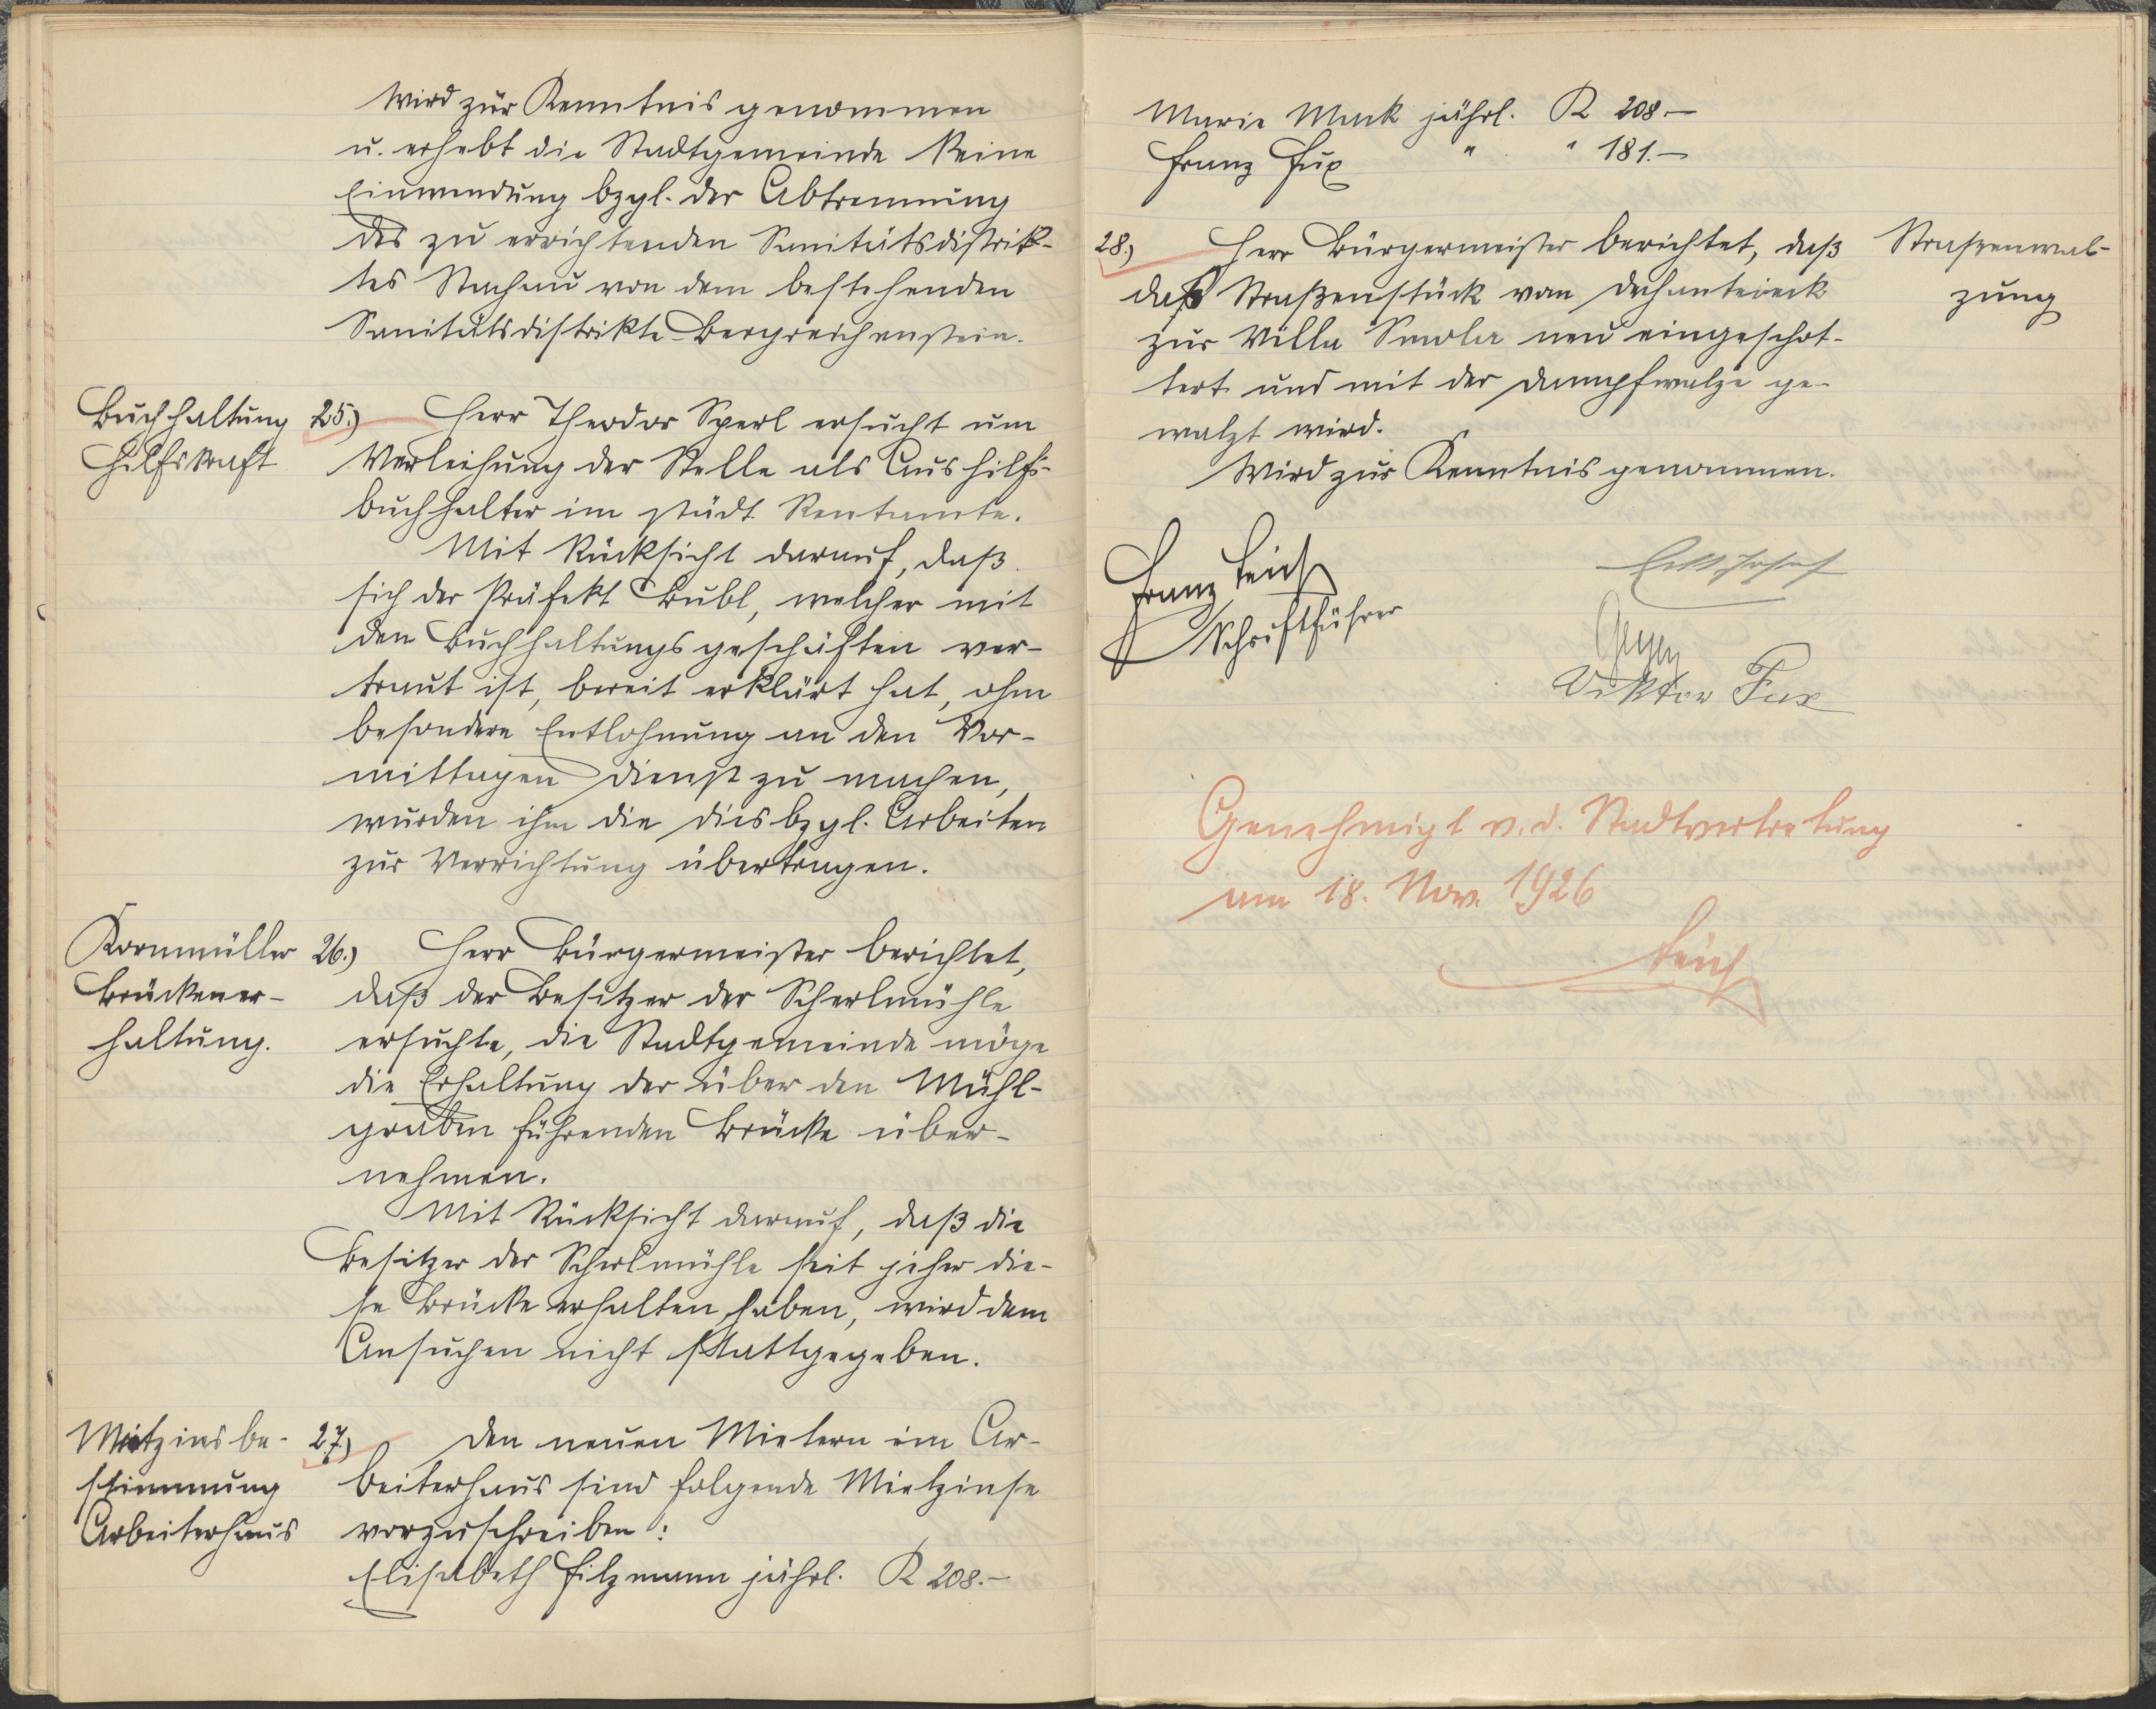 Wird zur Kenntnis genommen
u. erhebt die Stadtgemeinde keine
Einwendung bzgl. der Abtrennung
des zu errichtenden Sanitätsdistrik-
tes Stachau von dem bestehenden
Sanitätsdistrikte Bergreichenstein.
Buchhaltung
Hilfskraft
25.) Herr Theodor Sperl ersucht um
Verleihung der Stelle als Aushilfs-
buchhalter im städt. Rentamte.
Mit Rücksicht darauf, daß
sich der Präfekt Bubl, welcher mit
den Buchhaltungsgeschäften ver-
traut ist, bereit erklärt hat, ohne
besondere Entlohnung an den Vor-
mittagen Dienst zu machen,
wurden ihm die diesbzgl. Arbeiten
zur Verrichtung übertragen.
Kornmüller
Brückener-
haltung.
26.) Herr Bürgermeister berichtet,
daß der Besitzer der Scherlmühle
ersuchte, die Stadtgemeinde möge
die Erhaltung der über den Mühl-
graben führenden Brücke über-
nehmen.
Mit Rücksicht darauf, daß die
Besitzer der Scherlmühle seit jeher die-
se Brücke erhalten haben, wird dem
Ansuchen nicht stattgegeben.
Mietzinsbe-
stimmung
Arbeiterhaus
27.) Den neuen Mietern im Ar-
beiterhaus sind folgende Mietzinse
vorzuschreiben:
Elisabeth Filzmann jährl. K 208.-
Marie Mack jährl. K 208.-
Franz Fux " " 181.-
28.) Herr Bürgermeister berichtet, daß
das Straßenstück vom Dechanteieck
zur Villa Smola neu eingeschot-
tert und mit der Dampfwalze ge-
walzt wird.
Wird zur Kenntnis genommen.
Straßenwal-
zung
Franz
Schriftführer
Viktor Fux
Genehmigt v. d. Stadtvertretung
am 18. Nov. 1926